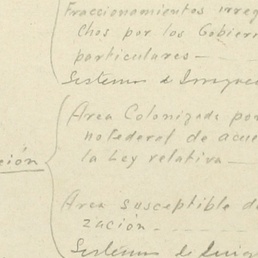 Fraccionamientos irreg
chos por los Gobier
particulares —
Sistemas de Irrigac
Area Colonizada por
no Federal de acue
la Ley relativa —
ción
Area susceptible d
zación. - - - -
Sistemas de Irrig